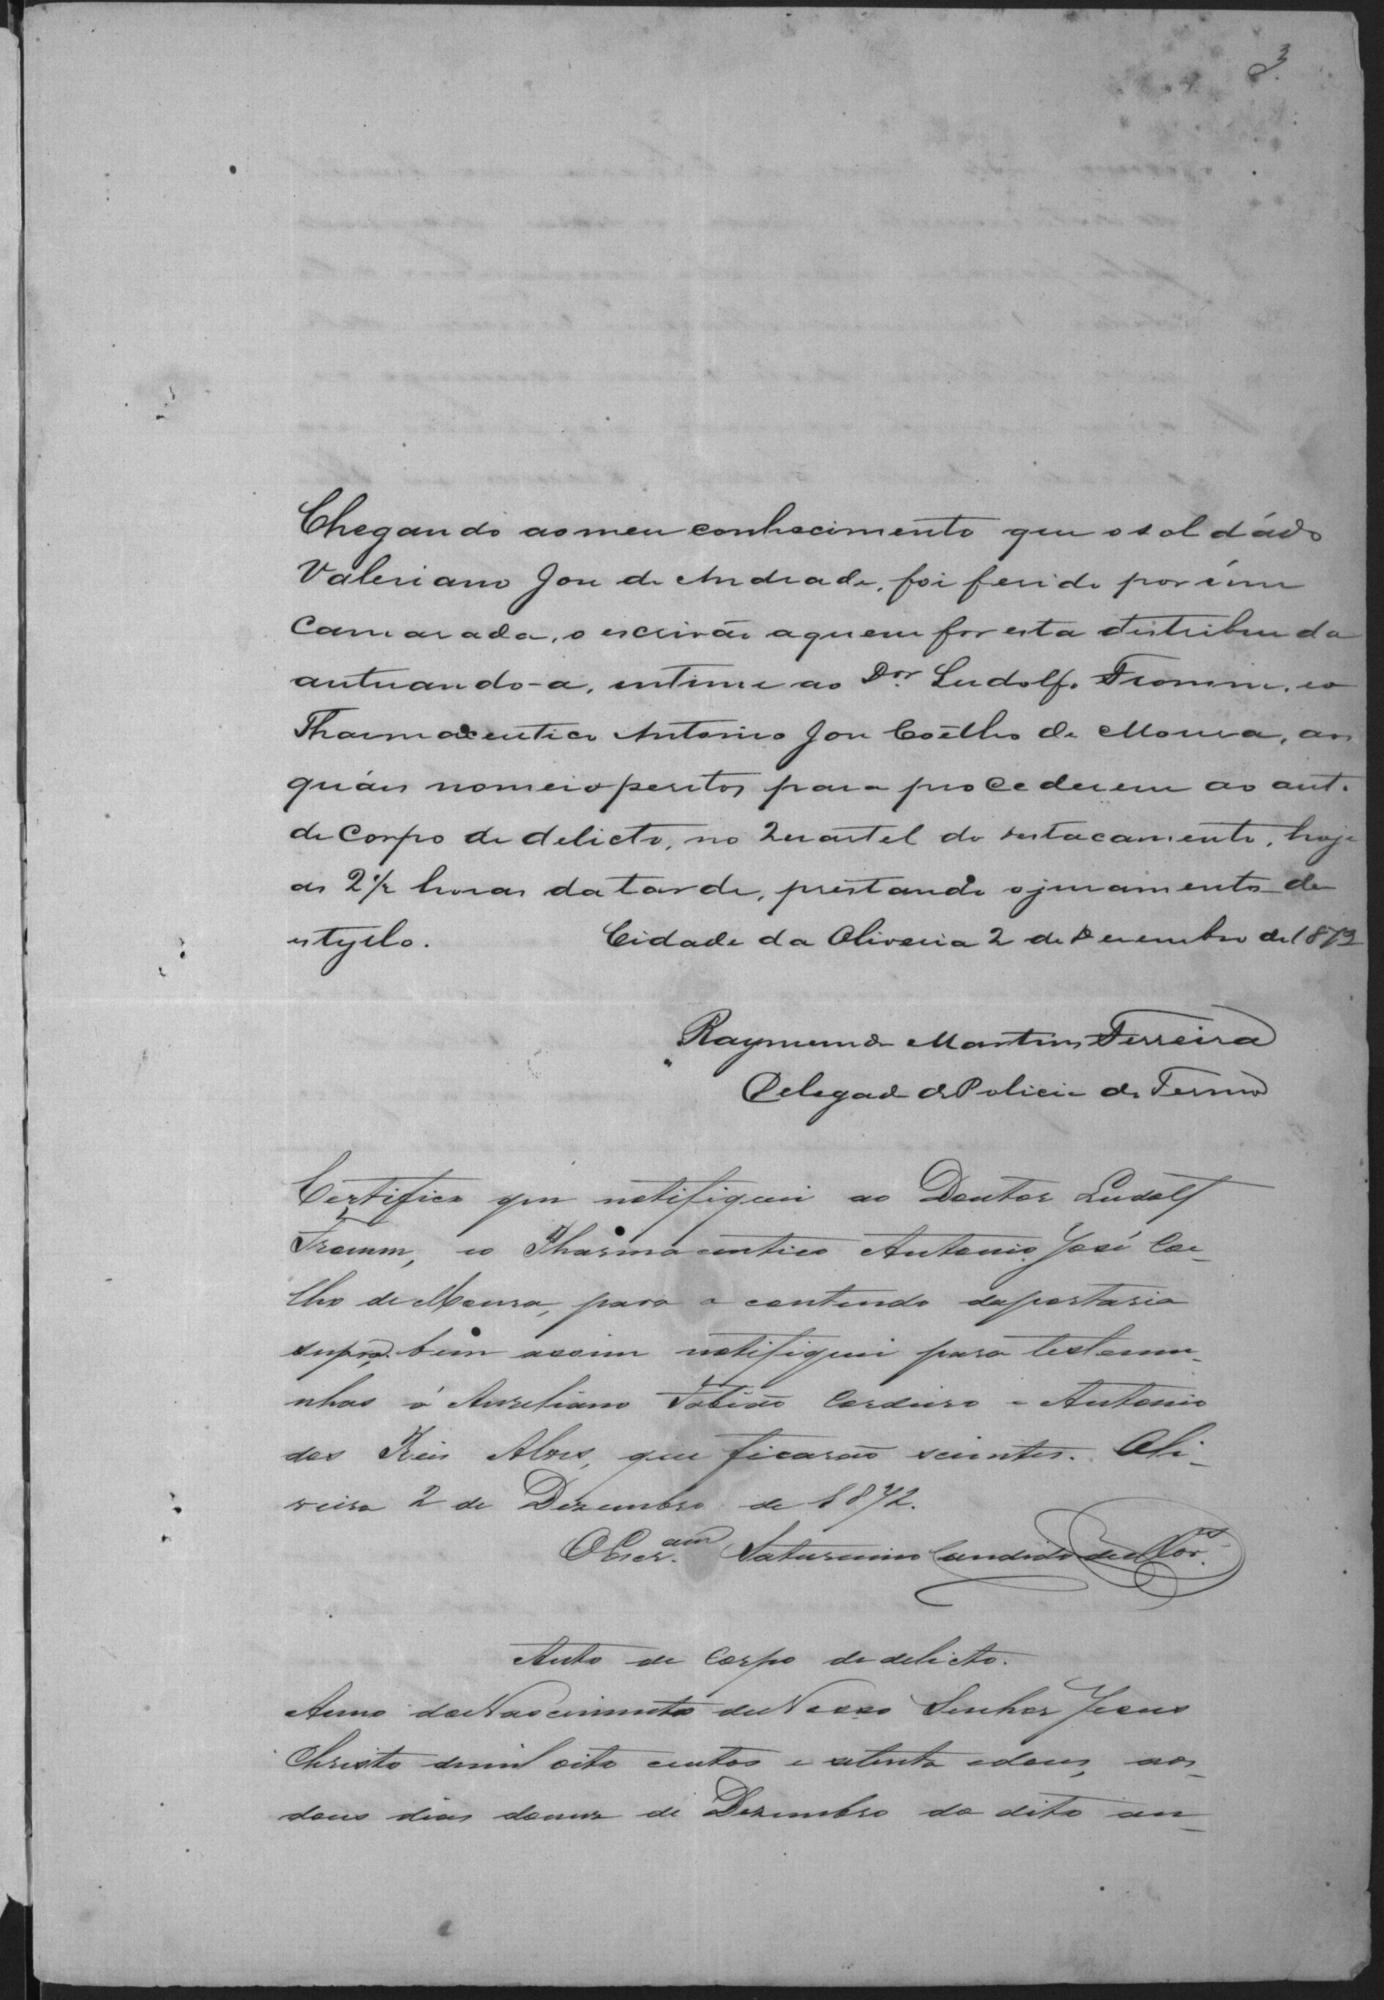 3
Chegando ao meu conhecimento que o soldádo
Valeriano José de Andrade, foi ferido por úm
Camarada, o escrivão a quem for esta distribuida
autuando-a, intime ao Dor. Ludolf. Fromm, e o
Pharmaceutico Antonio José Coêlho de Moura, aos
quáes nomeio peritos para procederem ao auto
de Corpo de delicto, no Quartel do destacamento, hoje
as 2 1/2 horas da tarde, prestando o juramento do
estyllo. Cidade da Oliveira 2 de Dezembro de 1872
Raymundo Martins Ferreira
Delegado de Policia do Termo
Certifico que notifiquei ao Doutor Ludolf
Fromm, e o Pharmaceutico Antonio José Coe-
lho de Moura, para o contendo da portaria
supra, bem assim notifiquei para testemu-
nhas á Aureliano Fabião Cordeiro e Antonio
dos Reis Alves, que ficarão scientes. Oli-
veira 2 de Dezembro de 1872.
O Escr.am Saturnino Candido de
Auto de Corpo de delicto.
Anno do Nascimento de Nosso Senhor Jesus
Christo de mil oito centos e setenta e dous, aos
dous dias do mez de Dezembro do dito an-